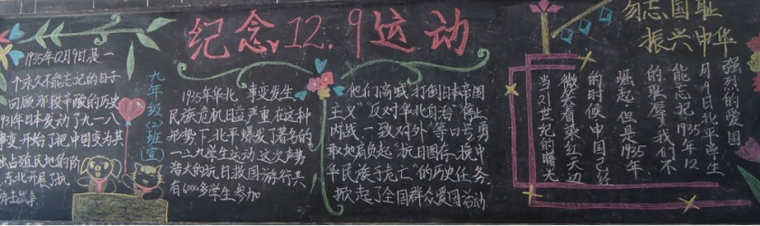 纪念12.9运动
勿忘国耻
振兴中华
1935年12月9日是一
个永久不能忘记的日子
回顾那段平凡的历史
1931年日本发动了九一八
事变开始了把中国变为其
占殖民地的阶
东北开展了抗
九年级(二)班宣
1935年华北事变发生
民族危机日益严重在这种
形势下北平爆发了著名的
一二九学生运动这次声势
浩大的抗日救国游行共
有6000多学生参加
他们高喊“打倒日本帝国
主义”“反对华北自治”“停止
内战一致对外”等口号勇
敢地肩负起“抗日图存 挽中
华民族于危亡”的历史任务
掀起了全国群众爱国运动
强烈的爱国
月9日北平学生
能忘记1935年12
的耻辱我们不
崛起但是1935年
的时候中国已经
微笑着乘红天边
当21世纪的曙光